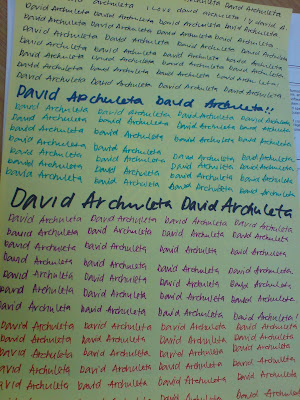 David Archuleta I love david archuleta! David A
David Archuleta David Archuleta David Archuleta David Archuleta
David Archuleta David Archuleta David Archuleta David Archuleta
David Archuleta David Archuleta David Archuleta David Archuleta
David Archuleta David Archuleta David Archuleta David Archuleta
David Archuleta David Archuleta David Archuleta David Archuleta
David Archuleta David Archuleta David Archuleta David Archuleta!
David Archuleta David Archuleta David Archuleta David Archuleta
David Archuleta David Archuleta!!
David Archuleta David Archuleta David Archuleta David Archuleta
David Archuleta David Archuleta David Archuleta David Archuleta
David Archuleta David Archuleta David Archuleta David Archuleta
David Archuleta David Archuleta David Archuleta David Archuleta
David Archuleta David Archuleta David Archuleta David Archuleta
David Archuleta David Archuleta David Archuleta David Archuleta
David Archuleta David Archuleta David Archuleta David Archuleta
David Archuleta David Archuleta
David Archuleta David Archuleta David Archuleta David Archuleta
David Archuleta David Archuleta David Archuleta David Archuleta
David Archuleta David Archuleta David Archuleta David Archuleta
David Archuleta David Archuleta David Archuleta David Archuleta
David Archuleta David Archuleta David Archuleta David Archuleta
David Archuleta David Archuleta David Archuleta David Archuleta
David Archuleta David Archuleta David Archuleta David Archuleta!
David Archuleta David Archuleta David Archuleta David Archuleta
David Archuleta David Archuleta David Archuleta David Archuleta
David Archuleta David Archuleta David Archuleta David Archuleta
David Archuleta David Archuleta David Archuleta David Archuleta
David Archuleta David Archuleta David Archuleta David Archuleta